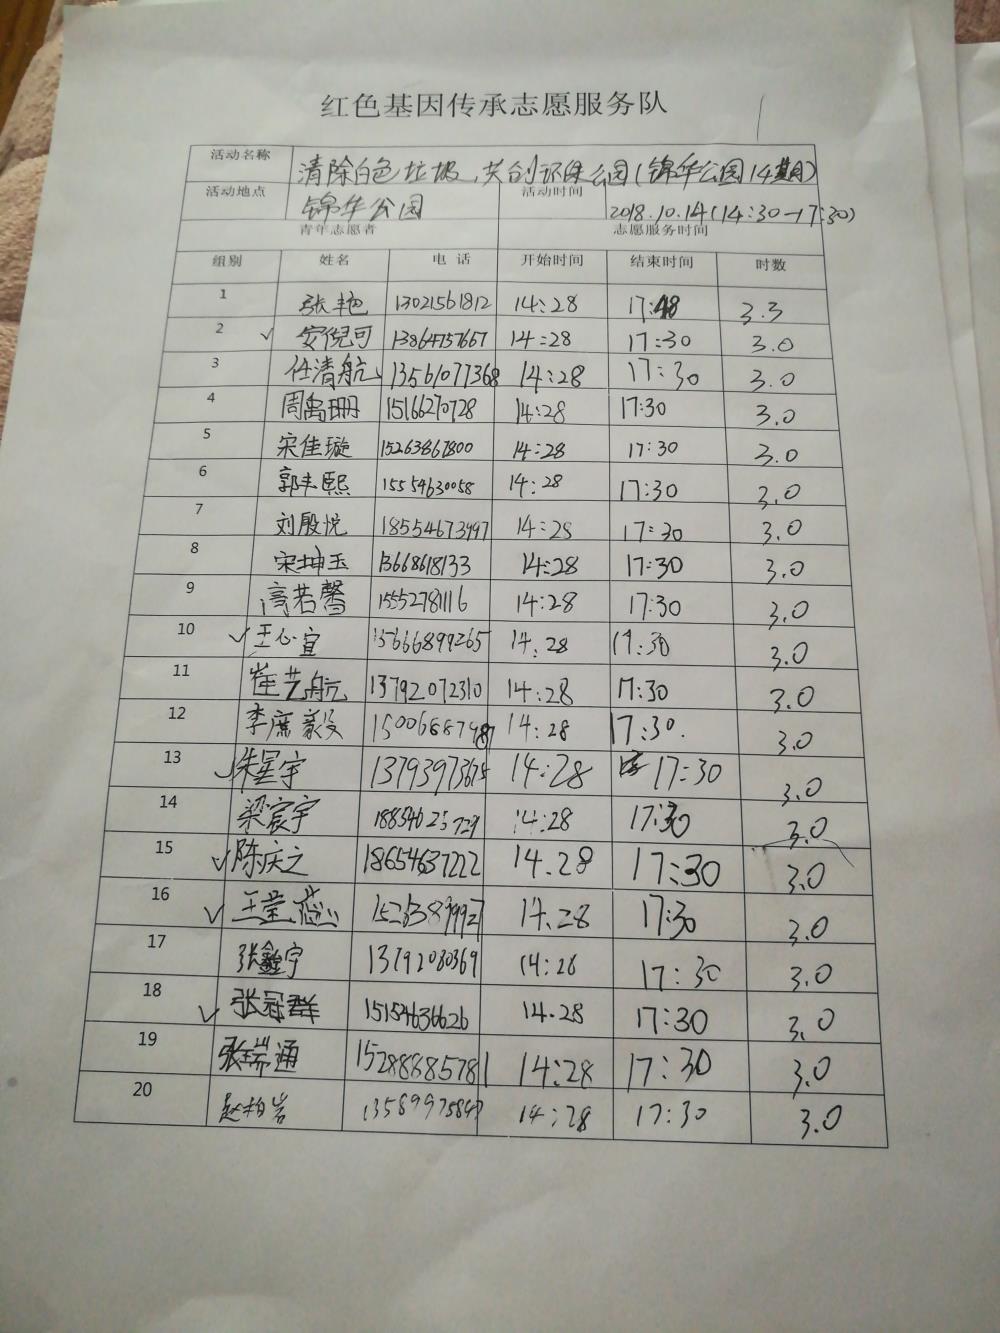 红色基因传承志愿服务队
活动名称 清除白色垃圾,共创环保公园(锦华公园14期)
活动地点 锦华公园 活动时间 2018.10.14(14:30-17:30)
青年志愿者 志愿服务时间
组别 姓名 电话 开始时间 结束时间 时数
1 张艳 13021561812 14:28 17:48 3.3
2 安倪可 13864757667 14:28 17:30 3.0
3 任清航 13561077368 14:28 17:30 3.0
4 周禹珊 15166270728 14:28 17:30 3.0
5 宋佳璇 15263867800 14:28 17:30 3.0
6 郭丰熙 15554630058 14:28 17:30 3.0
7 刘殷悦 18554673997 14:28 17:30 3.0
8 宋坤玉 13668618133 14:28 17:30 3.0
9 高若馨 15552781116 14:28 17:30 3.0
10 王心宜 13666899265 14:28 17:30 3.0
11 崔艺航 13792072310 14:28 17:30 3.0
12 李席毅 14:28 17:30. 3.0
13 朱星宇 13793973675 14:28 17:30 3.0
14 梁宸宇 18854625729 14:28 17:30 3.0
15 陈庆之 18654637222 14.28 17:30 3.0
16 14.28 17:30 3.0
17 张鑫宇 13792080369 14:28 17:30 3.0
18 张冠群 15154636626 14.28 17:30 3.0
19 张瑞通 15288885781 14:28 17:30 3.0
20 赵柏岩 13589975847 14:28 17:30 3.0